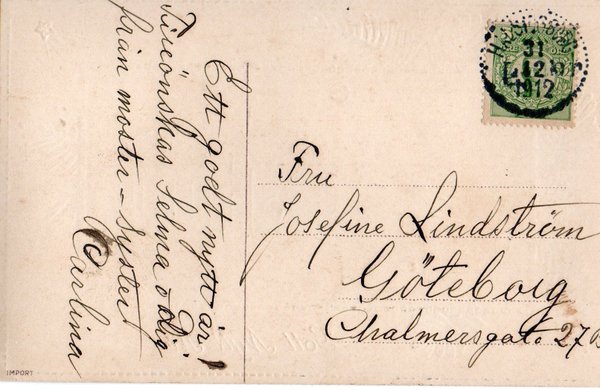 Ett godt nytt år!
Tillönskas Selma o dig
från moster - syster
Carlina
HÄLSINGBORG
31
12
1912
Fru
Josefine Lindström
Göteborg
Chalmersgat. 27B
IMPORT